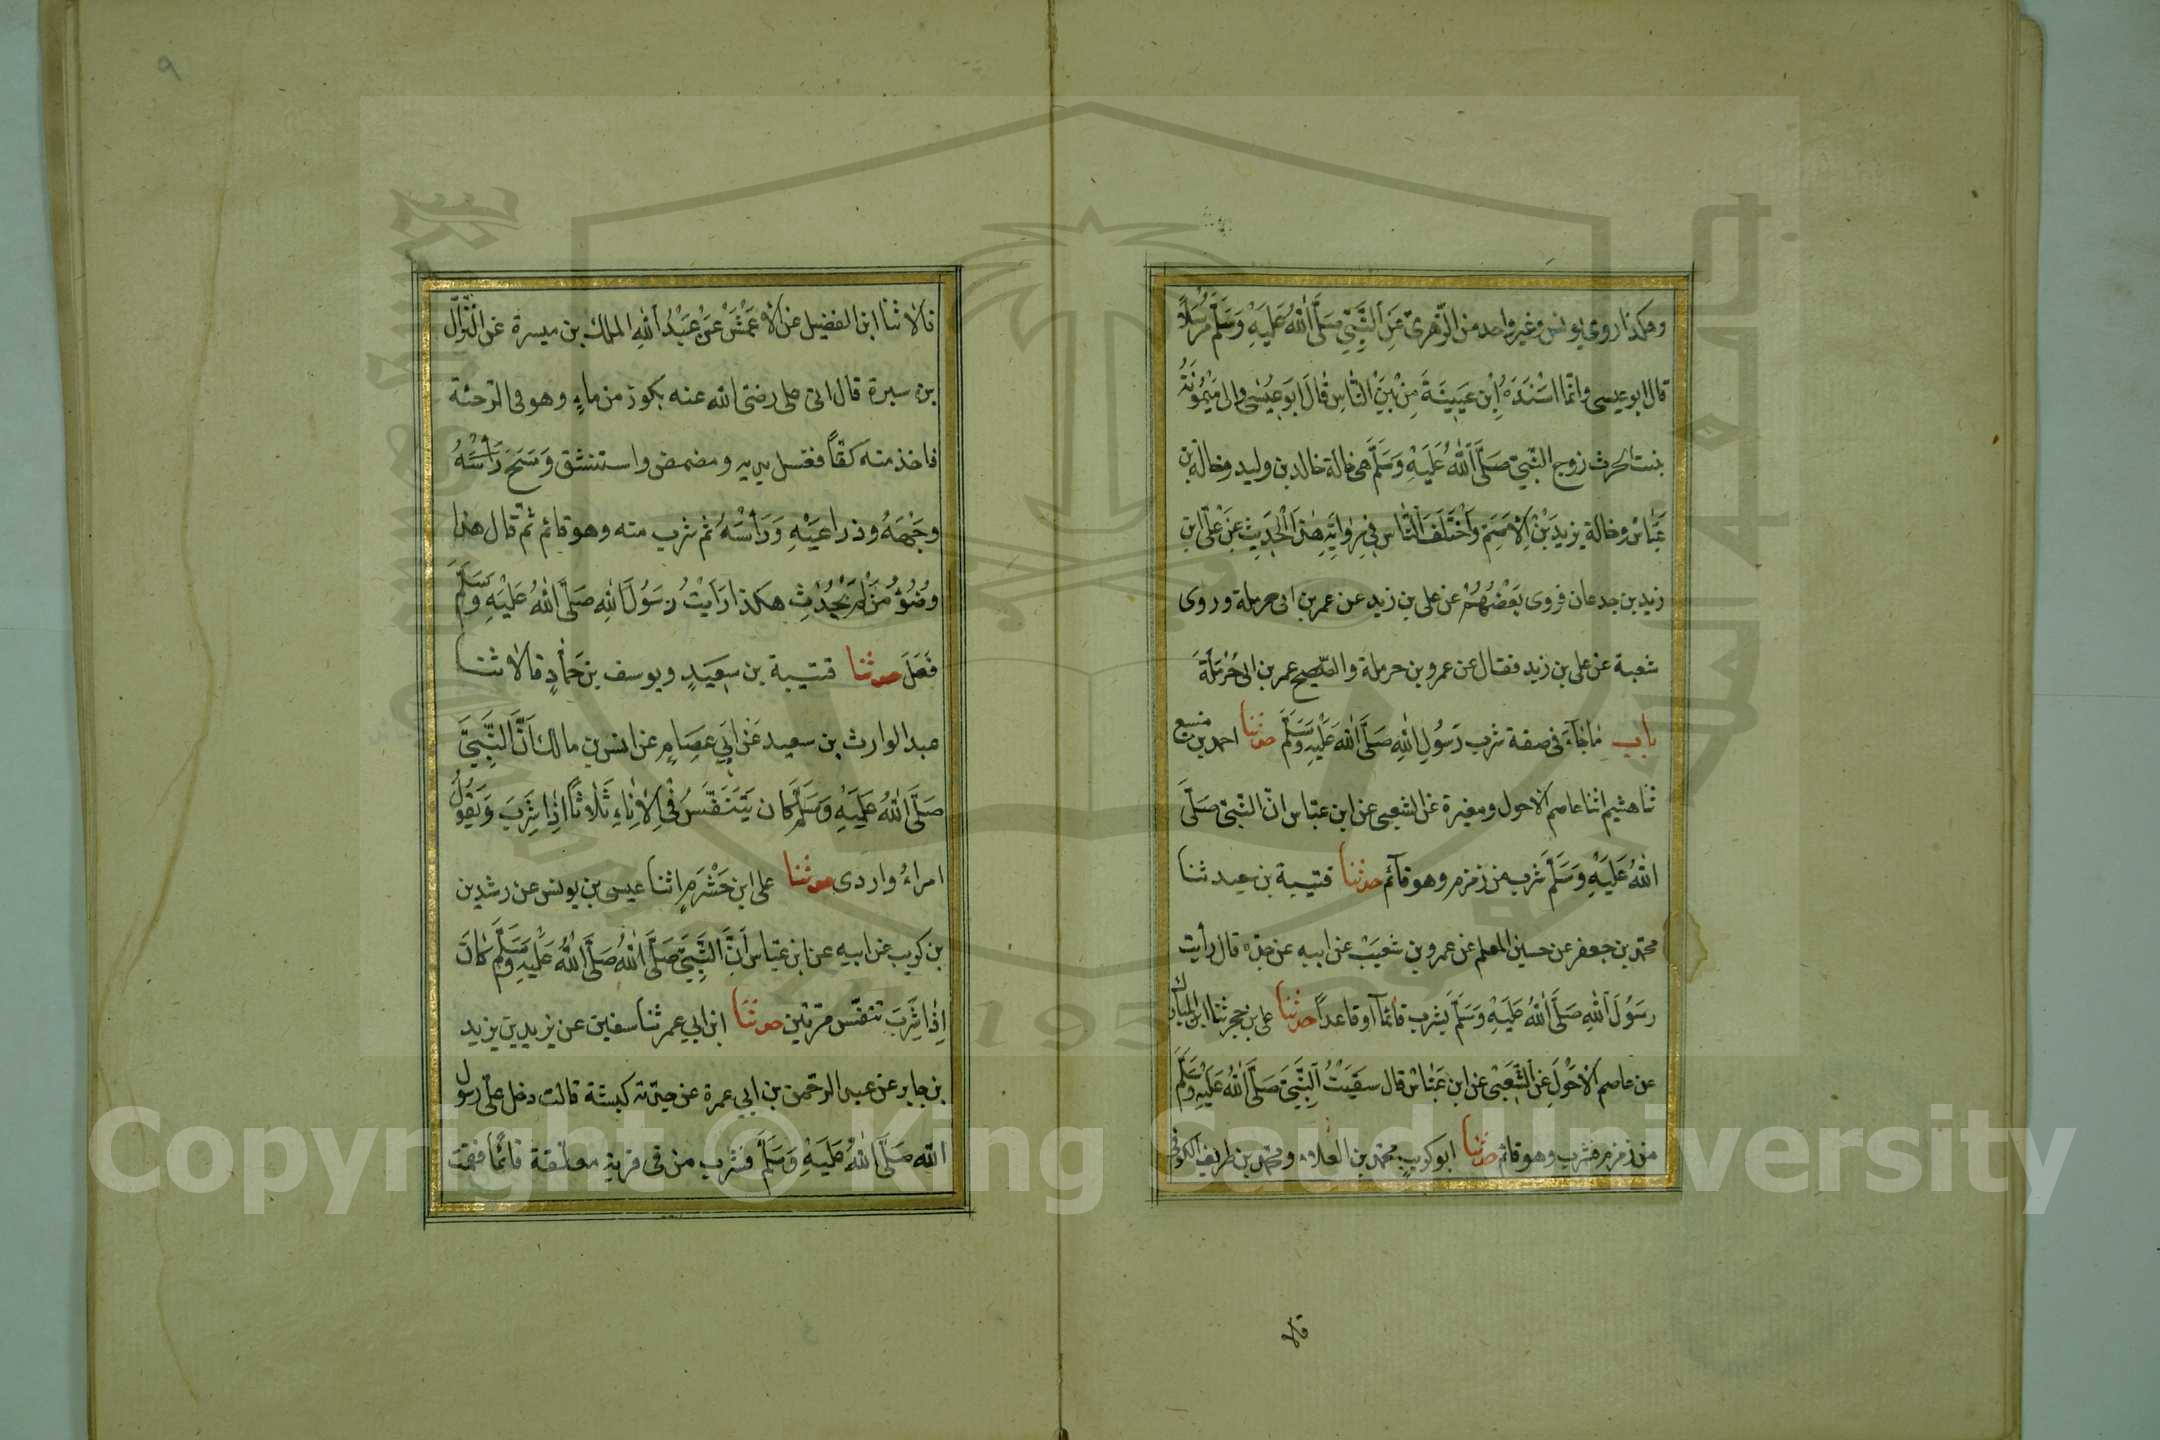 وهكذا روى يونس وغير واحد من الزّهرىّ عَنِ النَّبِيِّ صَلَّى اللهُ عَلَيْهِ وَسَلَّمَ مُرْسَلاً
قال ابو عيسى وانّما اسْنَدَهُ اِبْن عيَيْنَةَ مِنْ بَيْنِ النَّاسِ قَالَ ابَو عِيْسٰى والى مَيْمُوْنَةُ
بنت الحرث زوج النّبىّ صَلَّى اللهُ عَلَيْهِ وَسَلَّمَ هى خالة خالد بن وليد وخالة بن
عَبَّاس وخالة يزيد بْنِ الاَصَمِّ وَاخْتَلَفَ النَّاس فِى رِوَايَةِ هٰذَا الْحَدِيْثِ عَنْ عَلىِّ ابن
زيد بن جدعان فروى بَعْضُهُمْ عن على بن زيد عن عمر بن ابى حرملة وروى
شعبة عن على بن زيد فقال عن عمرو بن حرملة والصّحيح عمر بن ابى حَرْمَلَةَ
باب مَا جَآءَ فى صفة شرب رَسُوْلِ اللهِ صَلَّى اللهُ عَلَيْهِ وَسَلَّمَ حدثنا احمد بن منيع
ثنا هشيم اثنا عاصم الاحول ومغيرة عن الشعبى عن ابن عبّاس انّ النّبىّ صَلَّى
اللهُ عَلَيْهِ وَسَلَّمَ شرب من زمزم وهو قآئم حدثنا قتيبة بن سعيد ثنا
محمّد بن جعفر عن حسين المعلم عن عمرو بن شعَيْب عن ابيه عن جدّه قال رأيت
رَسُوْلَ اللهِ صَلَّى اللهُ عَلَيْهِ وَسَلَّمَ يشرب قائمًا أوقاعداً حدثنا على بن حجر ثنا ابن المبارك
عن عاصم الاَحْوَلِ عَنِ الشَّعْبِى عن ابن عَبَّاس قال سقَيْتُ النَّبِيَّ صَلَّى اللهُ عَلَيْهِ وَسَلَّمَ
من زمزم فشرب وهو قائم حدثنا ابو كريب محمّد بن العلاء ومحمّد بن طريف الكوفى
قالا
٩
قالا ثنا ابن الفضيل عن الاَعْمَشْ عَنْ عَبْدُ اللهِ الملك بن ميسرة عن النَّزَّالِ
بن سبرة قال اتى على رضى الله عنه بكوز من ماء وهو فى الرّحبة
فاخذ منه كفّاً فغسل يديه ومضمض واستنشق وَمَسَحَ رَأْسَهُ
وجْهَهُ وذراعَيْهِ وَرَأْسَهُ ثم شرب منه وهو قائم ثمّ قال هذا
وضُوْءُ مَنْ لَمْ يُحْدِثْ هكذا رَأَيْتُ رَسُوْلَ اللهِ صَلَّى اللهُ عَلَيْهِ وَسَلَّمَ
فَعَلَ حدثنا قتيبة بن سعِيَدٍ ويوسف بن حَمَّادٍ قالا ثنا
عبد الوارث بن سعيد عَنْ ابِى عِصَامٍ عن انس بن مالك اَنَّ النَّبِيَّ
صَلَّى اللهُ عَلَيْهِ وَسَلَّمَ كان يَتَنَفَّسُ فِى الاِنَاءِ ثَلاَثاً اِذَا شَرِبَ وَيَقُوْلُ
امراءُ واردى حدثنا على ابن خَشْرَمٍ اثنا عيسى بن يونس عن رشدين
بن كريب عن ابيه عن ابن عبّاس اَنَّ النَّبِيَّ صَلَّى اللهُ صَلَّى اللهُ عَلَيْهِ وَسَلَّمَ كَانَ
اِذَا شَرِبَ تنفّس مرّتين حدثنا ابن ابى عمر ثنا سفين عن يزيد بن يزيد
بن جابر عن عبد الرحمن بن ابى عمرة عن جدّته كبشة قالت دخل علىّ رسول
الله صَلَّى اللهُ عَلَيْهِ وَسَلَّمَ فشرب من فى قربة معلّقة قائمًا فقمت
Copyright © King Saud University